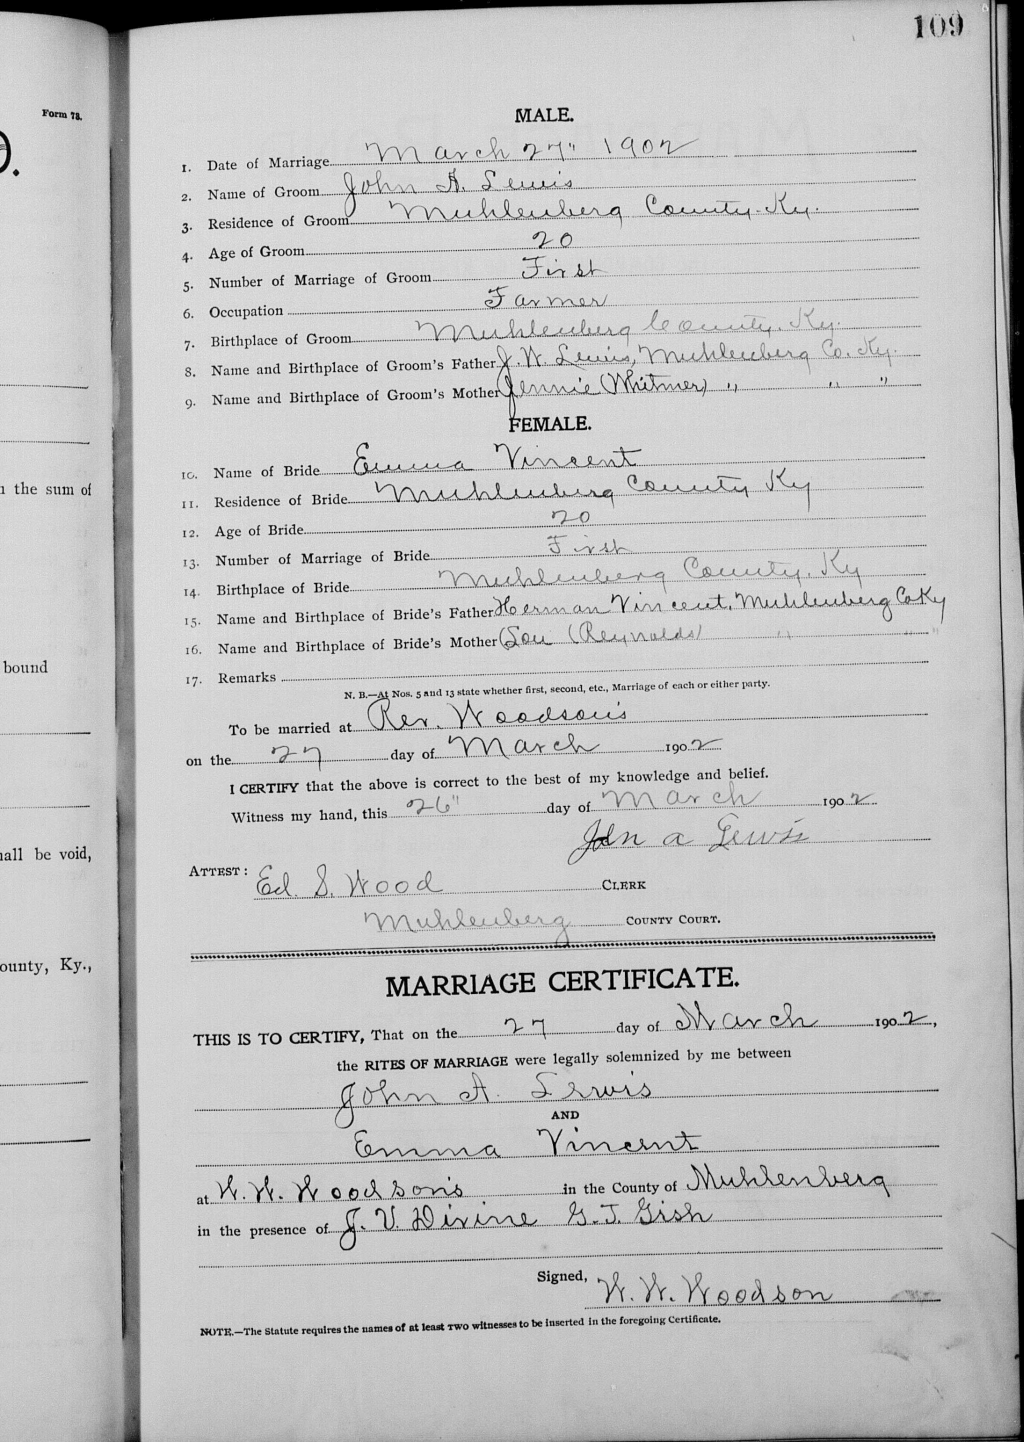 109
Form 78.
O.
MALE.
1. Date of Marriage March 27" 1902
2. Name of Groom John A. Lewis
3. Residence of Groom Muhlenberg County. Ky.
4. Age of Groom 20
5. Number of Marriage of Groom First
6. Occupation Farmer
7. Birthplace of Groom Muhlenberg County. Ky.
8. Name and Birthplace of Groom's Father J. W. Lewis, Muhlenberg Co. Ky.
9. Name and Birthplace of Groom's Mother Jennie (Whitmer) " " "
FEMALE.
10. Name of Bride Emma Vincent
11. Residence of Bride Muhlenberg County Ky
12. Age of Bride 20
13. Number of Marriage of Bride First
14. Birthplace of Bride Muhlenberg County, Ky
15. Name and Birthplace of Bride's Father Herman Vincent, Muhlenberg Co Ky
16. Name and Birthplace of Bride's Mother Lou (Reynolds) " " "
17. Remarks
N. B.—At Nos. 5 and 13 state whether first, second, etc., Marriage of each or either party.
To be married at Rev. Woodson's
on the 27 day of March 1902
I CERTIFY that the above is correct to the best of my knowledge and belief.
Witness my hand, this 26" day of March 1902
John a Lewis
ATTEST: Ed. S. Wood CLERK
Muhlenberg COUNTY COURT.
MARRIAGE CERTIFICATE.
THIS IS TO CERTIFY, That on the 27 day of March 1902,
the RITES OF MARRIAGE were legally solemnized by me between
John A. Lewis
AND
Emma Vincent
at W. W. Woodson's in the County of Muhlenberg
in the presence of J. V. Divine G. J. Gish
Signed, W. W. Woodson
NOTE.—The Statute requires the names of at least TWO witnesses to be inserted in the foregoing Certificate.
the sum of
bound
all be void,
ounty, Ky.,